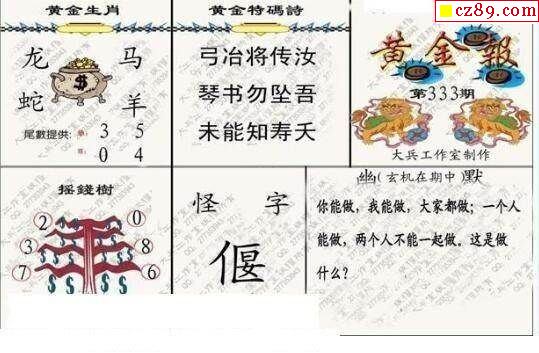 cz89.com
黄金生肖
龙 马
蛇 羊
尾數提供: 3 5
0 4
黄金特碼詩
弓冶将传汝
琴书勿坠吾
未能知寿夭
黄金報
第333期
大兵工作室制作
摇錢樹
2 0
3 8
7 6
怪 字
偃
幽(玄机在期中)默
你能做,我能做,大家都做;一个人
能做,两个人不能一起做。这是做
什么?